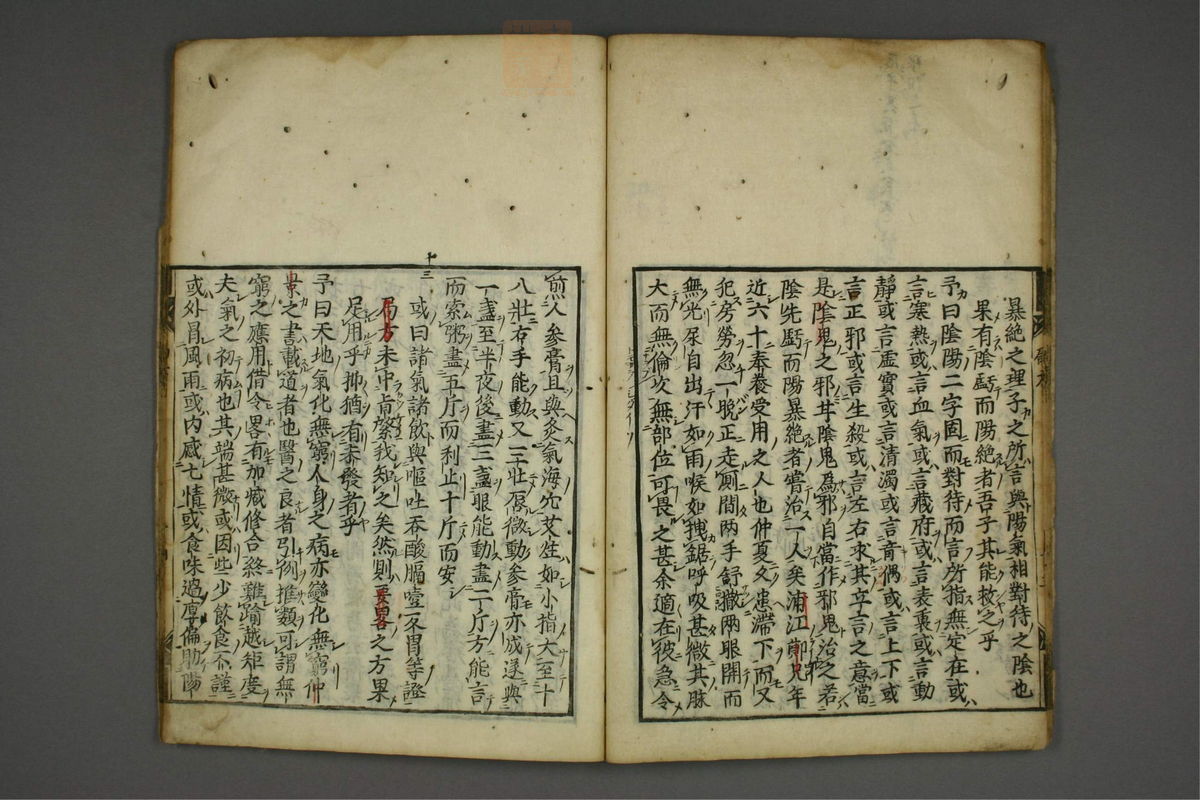 暴絶之理子之所言與陽氣相對待之陰也
果有陰虧而陽絶者吾子其能救之乎
予曰陰陽二字固而對待而言所指無定在或
言寒熱或言血氣或言蔵府或言表裏或言動
靜或言虛實或言清濁或言奇偶或言上下或
言正邪或言生殺或言左右求其立言之意當
是陰鬼之邪耳陰鬼為邪自當作邪鬼治之若
陰先虧而陽暴絶者嘗治一人矣浦江鄭兄年
近六十奉養受用之人也仲夏久患滯下而又
犯房勞忽一晚正走厠間兩手舒撒兩眼開而
無光尿自出汗如雨喉如拽鋸呼吸甚微其脉
大而無倫次無部位可畏之甚余適在彼急令
煎人参膏且與灸氣海穴艾炷如小指大至十
八壯右手能動又三壯唇微動参膏亦成遂與
一盞至半夜後盡三盞眼能動盡二斤方能言
而索粥盡五斤而利止十斤而安
十三
或曰諸氣諸飲與嘔吐吞酸膈噎反胃等證
局方未中肯綮我知之矣然則要畧之方果
足用乎抑猶有未發者乎
予曰天地氣化無窮人身之病亦變化無窮仲
景之書載道者也醫之良者引例推類可謂無
窮之應用借令畧有加減修合終難踰越矩度
夫氣之初病也其端甚微或因些少飲食不謹
或外冒風雨或内感七情或食味過厚偏助陽